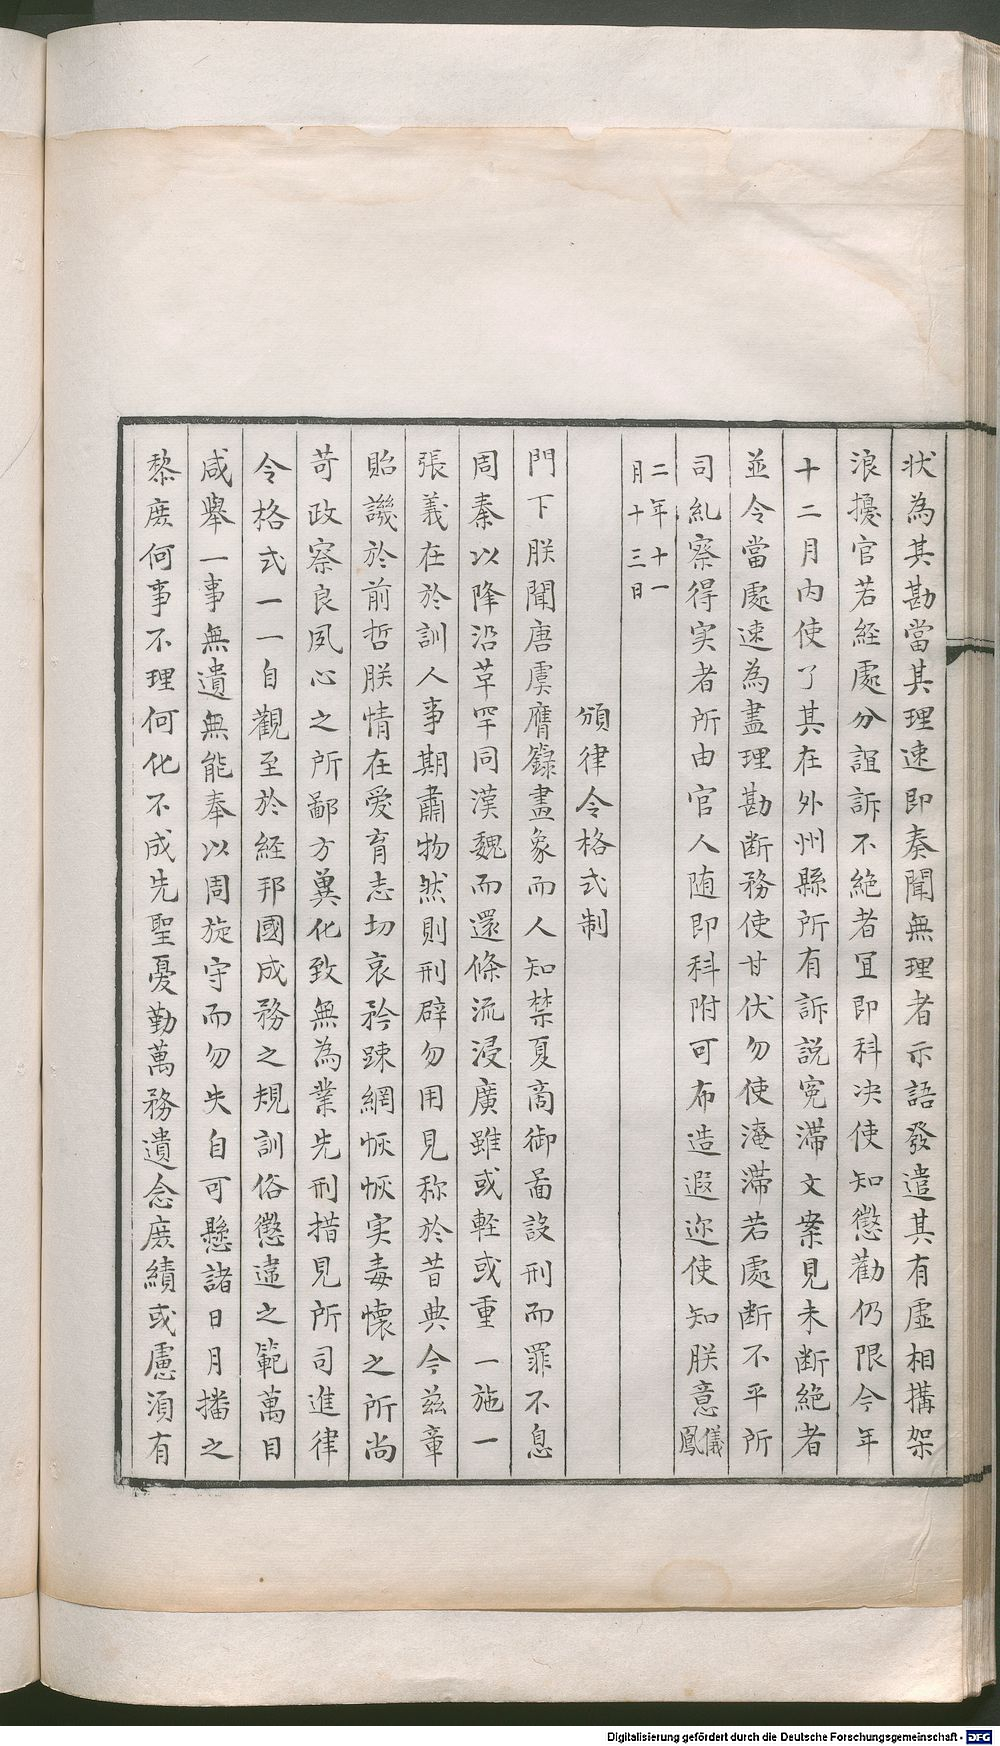 状為其勘當其理速即奏聞無理者示語發遣其有虛相搆架
浪擾官若経處分誼訴不絶者冝即科决使知懲勸仍限今年
十二月内使了其在外州縣所有訴説寃滯文案見未断絶者
並令當處速為盡理勘断務使甘伏勿使淹滯若處断不平所
司糺察得实者所由官人随即科附可布造遐迩使知朕意儀鳳
二年十一
月十三日
頒律令格式制
門下朕聞唐虞膺籙畫象而人知禁夏商御啚設刑而罪不息
周秦以降沿革罕同漢魏而還條流浸廣雖或軽或重一施一
張義在於訓人事期肅物然則刑辟勿用見称於昔典今兹章
貽譏於前哲朕情在愛育志切哀矜踈網恢恢实毒懷之所尚
苛政察良夙心之所鄙方冀化致無為業先刑措見所司進律
令格式一一自觀至於経邦國成務之規訓俗懲違之範萬目
咸舉一事無遺無能奉以周旋守而勿失自可懸諸日月播之
黎庶何事不理何化不成先聖憂勤萬務遺念庶績或慮湏有
Digitalisierung gefördert durch die Deutsche Forschungsgemeinschaft - DFG